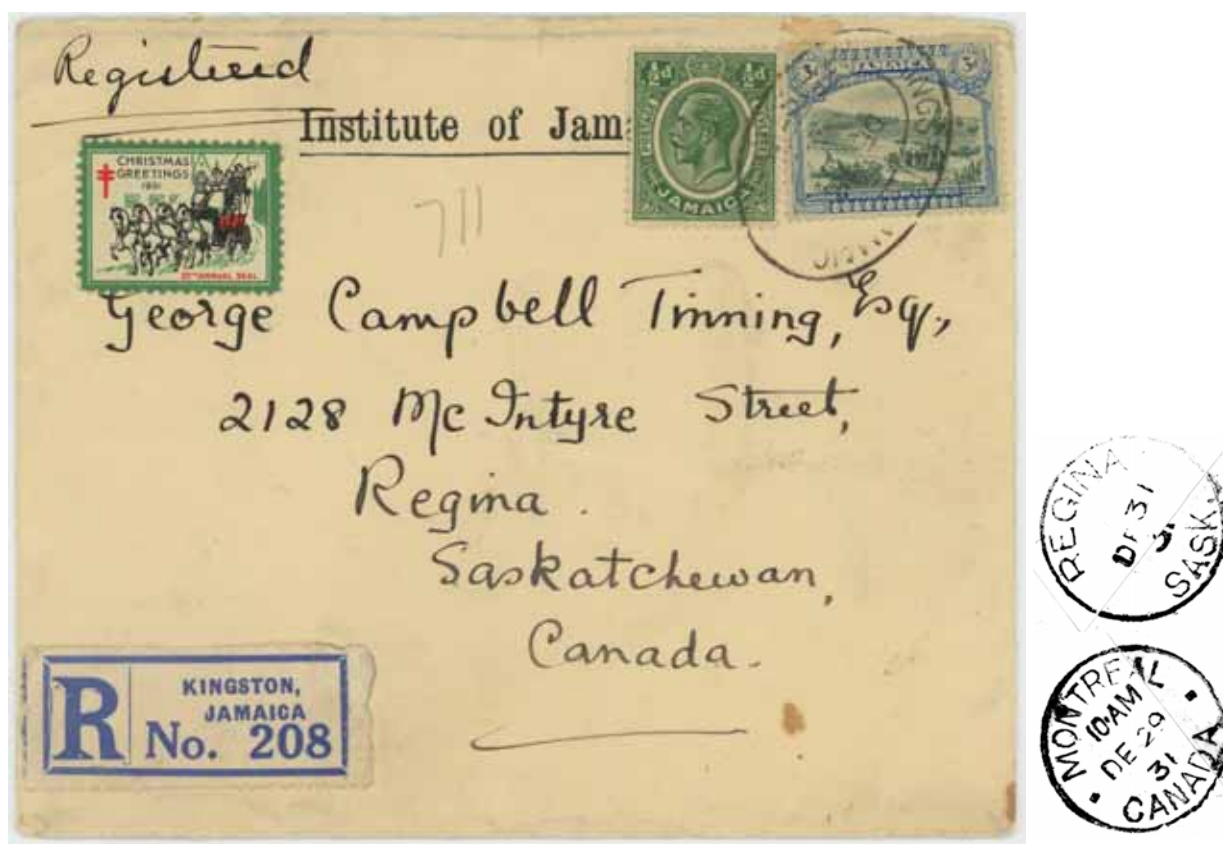 Registered
Institute of Jam
CHRISTMAS
GREETINGS
1931
25TH ANNUAL SEAL
½d ½d
POSTAGE
JAMAICA
JAMAICA
711
George Campbell Tinning, Esq.,
2128 McIntyre Street,
Regina.
Saskatchewan,
Canada.
R
KINGSTON,
JAMAICA
No. 208
REGINA
DE 31
31
SASK.
MONTREAL
10·AM
DE 29
31
CANADA